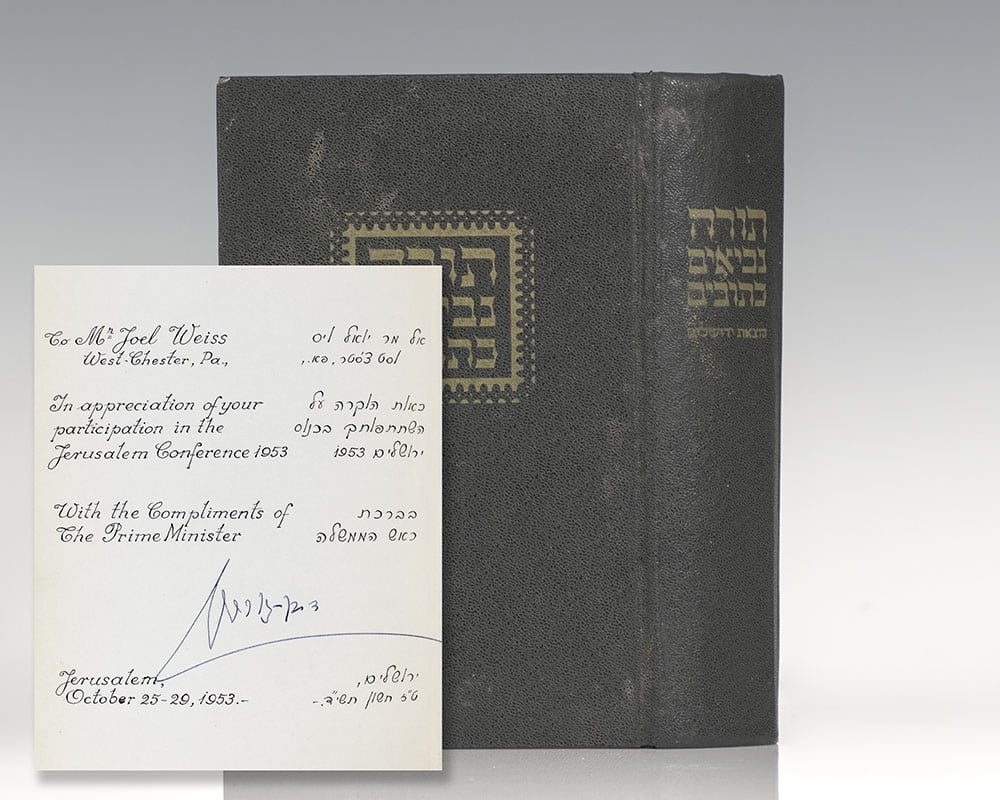 To Mr Joel Weiss
West-Chester, Pa.,
In appreciation of your
participation in the
Jerusalem Conference 1953
With the Compliments of
The Prime Minister
Jerusalem,
October 25-29, 1953.-
אל מר יואל וייס
וסט צ'סטר, פא.,
כאות הוקרה על
השתתפותך בכנוס
ירושלים 1953
בברכת
ראש הממשלה
ד. בן-גוריון
ירושלים,
ט"ז חשון תשי"ד.-
תורה
תורה
נביאים
כתובים
הוצאת ירושלים